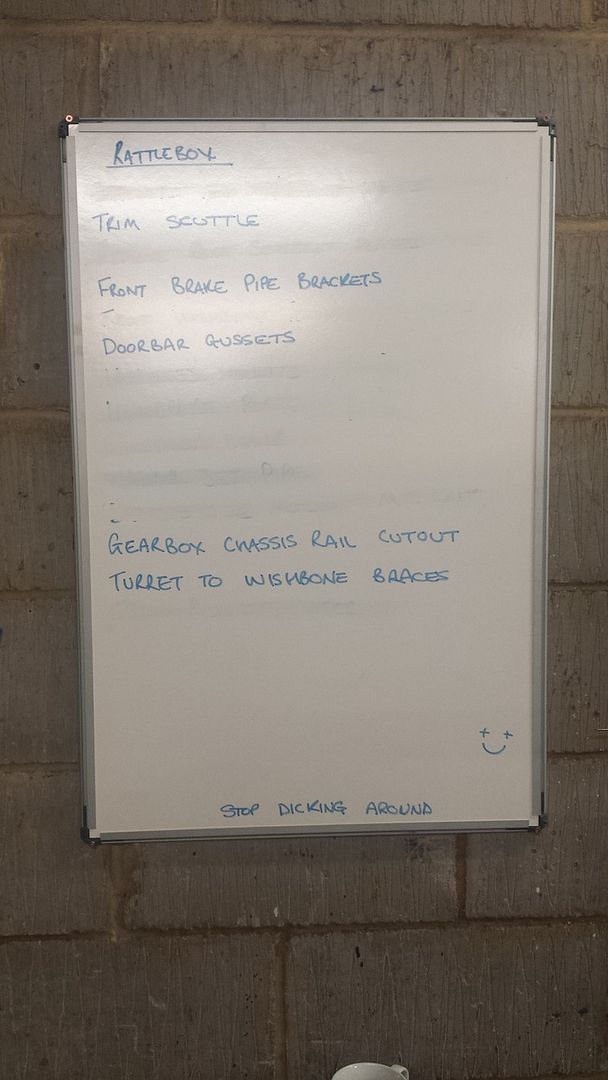 RATTLEBOX
TRIM SCUTTLE
FRONT BRAKE PIPE BRACKETS
DOORBAR GUSSETS
GEARBOX CHASSIS RAIL CUTOUT
TURRET TO WISHBONE BRACES
STOP DICKING AROUND